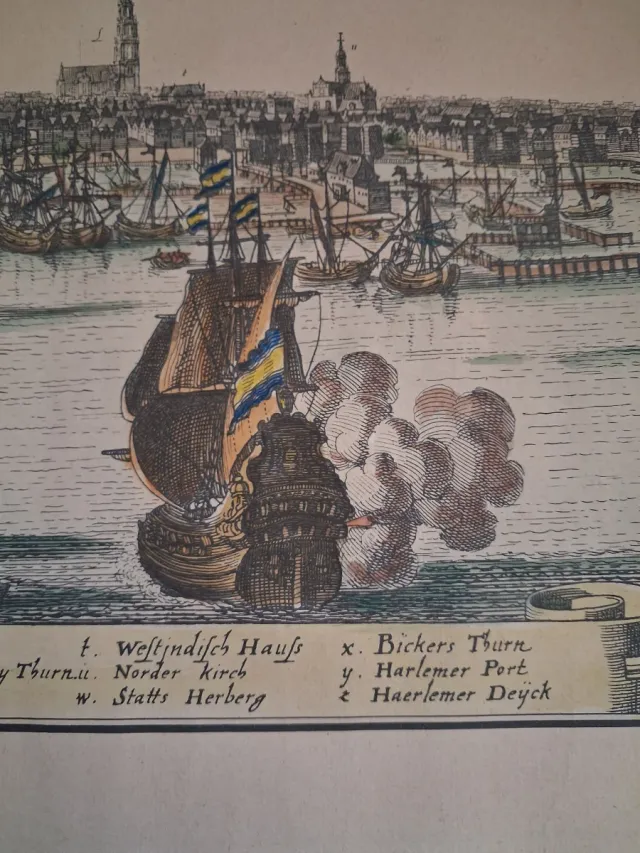 t. Weſtjndiſch Hauſs
y Thurn. u. Norder kirch
w. Statts Herberg
x. Bickers Thurn
y. Harlemer Port
z Haerlemer Deÿck